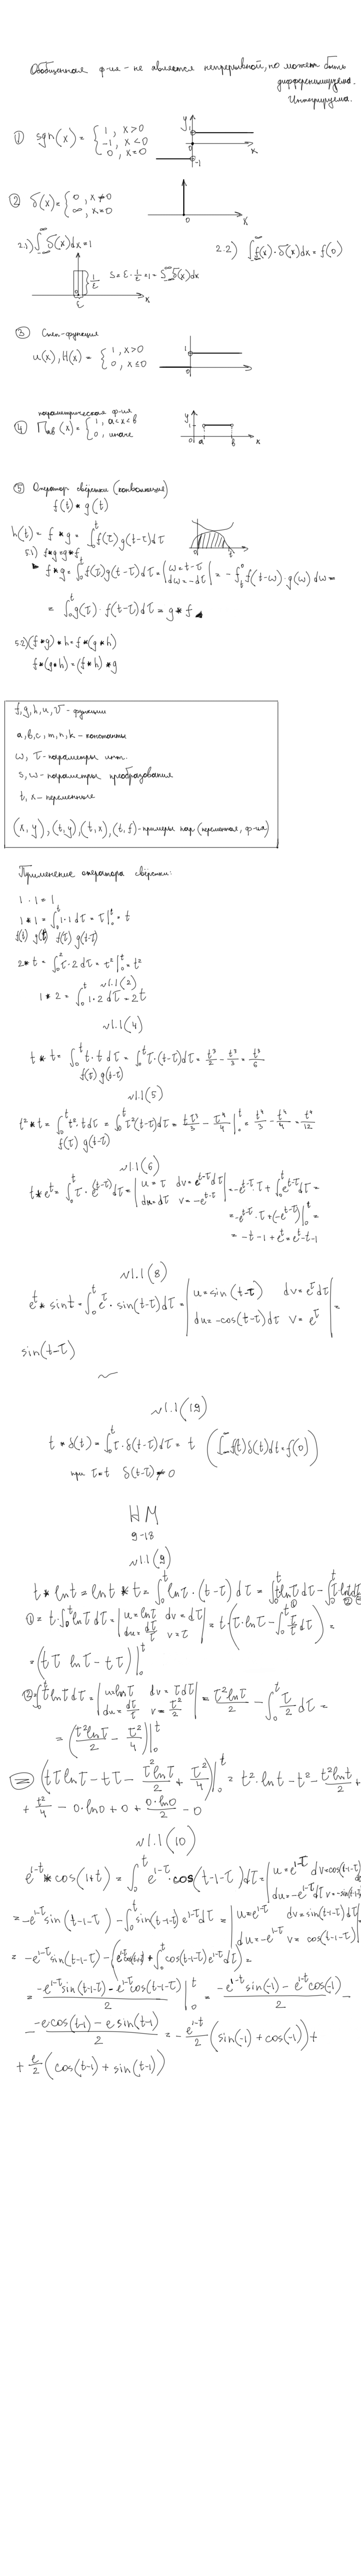 Обобщенная ф-ия - не является непрерывной, но может быть
дифференцируема.
Интегрируема.
① sgn(x) = { 1, x>0
-1, x<0
0, x=0
y
1
0
-1
x
② δ(x) = { 0, x≠0
∞, x=0
0
x
2.1) ∫_{-∞}^{∞} δ(x)dx=1
2.2) ∫_{-∞}^{∞} f(x)·δ(x)dx = f(0)
1/ε
S = ε · 1/ε = 1 = ∫_{-∞}^{∞} δ(x)dx
0
ε
x
u(x), H(x) = { 1, x>0
0, x≤0
1
0
параметрическая ф-ия
④ Π_{ab}(x) = { 1, a<x<b
0, иначе
y
1
0 a b x
⑤ Оператор свёртки (конволюция)
f(t) * g(t)
h(t) = f * g = ∫_0^t f(τ)g(t-τ)dτ
5.1) f*g=g*f
f*g = ∫_0^t f(τ)g(t-τ)dτ = | ω=t-τ
dω=-dτ | = -∫_t^0 f(t-ω)·g(ω)dω =
= ∫_0^t g(τ)·f(t-τ)dτ = g*f
5.2) (f*g)*h = f*(g*h)
f*(g*h) = (f*h)*g
f, g, h, u, v - функции
a, b, c, m, n, k - константы
ω, τ - параметры инт.
s, ω - параметры преобразования
t, x - переменные
(x, y), (t, y), (t, x), (t, f) - примеры пар (переменная, ф-ия)
Применение оператора свёртки:
1 · 1 = 1
1 * 1 = ∫_0^t 1·1 dτ = τ|_0^t = t
f(t) g(t) f(τ) g(t-τ)
2 * t = ∫_0^2 τ·2 dτ = τ²|_0^t = t²
√1.1(2)
1 * 2 = ∫_0^t 1·2 dτ = 2t
√1.1(4)
t * t = ∫_0^t t·t dτ = ∫_0^t τ·(t-τ)dτ = t³/2 - t³/3 = t³/6
f(τ) g(t-τ)
√1.1(5)
t² * t = ∫_0^t t²·t dτ = ∫_0^t τ²(t-τ)dτ = tτ³/3 - τ⁴/4 |_0^t = t⁴/3 - t⁴/4 = t⁴/12
f(τ) g(t-τ)
√1.1(6)
t * e^t = ∫_0^t τ·e^{(t-τ)}dτ = | u=τ dv=e^{t-τ}dτ
du=dτ v=-e^{t-τ} | = -e^{t-τ}·τ + ∫_0^t e^{t-τ}dτ =
= -e^{t-τ}·τ + (-e^{t-τ})|_0^t =
= -t-1+e^t = e^t-t-1
√1.1(8)
e^t * sin t = ∫_0^t e^τ · sin(t-τ)dτ = | u = sin(t-τ) dv = e^τ dτ
du = -cos(t-τ)dτ v = e^τ | =
sin(t-τ)
√1.1(19)
t * δ(t) = ∫_0^t τ·δ(t-τ)dτ = t (∫_{-∞}^{∞} f(t)δ(t)dt = f(0))
при τ≠t δ(t-τ)=0
HM
9-18
√1.1(9)
t * ln t = ln t * t = ∫_0^t ln τ · (t-τ)dτ = ∫_0^t t ln τ dτ - ∫_0^t τ·ln τ dτ
① = t·∫_0^t ln τ dτ = | u=ln τ dv=dτ
du=dτ/τ v=τ | = t(τ·ln τ - ∫_0^t τ/τ dτ) =
= (tτ ln τ - tτ)|_0^t
② = ∫_0^t τ ln τ dτ = | u=ln τ dv=τdτ
du=dτ/τ v=τ²/2 | = τ² ln τ/2 - ∫_0^t τ/2 dτ =
= (τ² ln τ/2 - τ²/4)|_0^t
= (tτ ln τ - tτ - τ² ln τ/2 + τ²/4)|_0^t = t²·ln t - t² - t² ln t/2 +
+ t²/4 - 0·ln 0 + 0 + 0·ln 0/2 - 0
√1.1(10)
e^{1-t} * cos(1+t) = ∫_0^t e^{1-τ}·cos(t-1-τ)dτ = | u=e^{1-τ} dv=cos(t-1-τ)dτ
du=-e^{1-τ}dτ v=-sin(t-1-τ)
= -e^{1-τ}sin(t-1-τ) - ∫_0^t sin(t-1-τ)e^{1-τ}dτ = | u=e^{1-τ} dv=sin(t-1-τ)dτ
du=-e^{1-τ} v=cos(t-1-τ) |
= -e^{1-τ}sin(t-1-τ) - (e^{1-τ}cos(t-1-τ) + ∫_0^t cos(t-1-τ)e^{1-τ}dτ) =
= (-e^{1-τ}sin(t-1-τ) - e^{1-τ}cos(t-1-τ))/2 |_0^t = (-e^{1-t}sin(-1) - e^{1-t}cos(-1))/2 -
- (-e cos(t-1) - e sin(t-1))/2 = -e^{1-t}/2 (sin(-1) + cos(-1)) +
+ e/2 (cos(t-1) + sin(t-1))